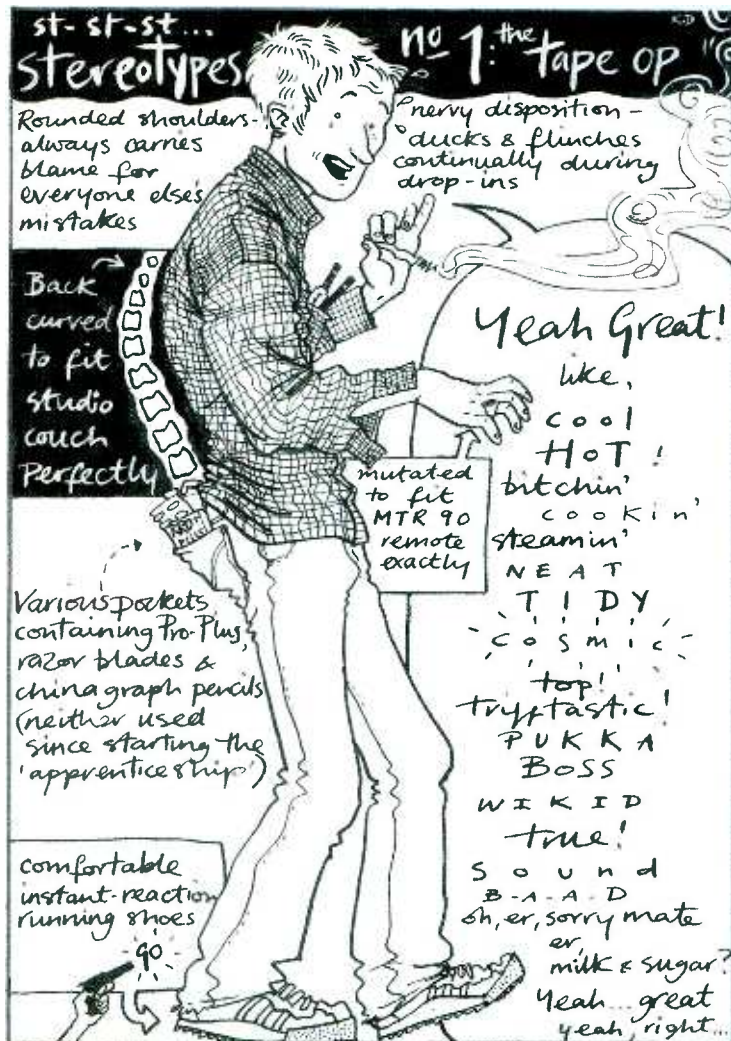 st- st- st...
stereotypes
no 1: the tape op
Rounded shoulders-
always carries
blame for
everyone elses
mistakes
nervy disposition -
ducks & flinches
continually during
drop-ins
Back
curved
to fit
studio
couch
perfectly
mutated
to fit
MTR 90
remote
exactly
Various pockets
containing Pro-Plus,
razor blades &
china graph pencils
(neither used
since starting the
'apprenticeship')
comfortable
instant-reaction
running shoes
go
Yeah Great!
like,
cool
HOT!
bitchin'
cookin'
steamin'
NEAT
TIDY
cosmic
top!
tryptastic!
PUKKA
BOSS
WIKID
true!
Sound
B-A-A-D
oh, er, sorry mate
er,
milk & sugar?
Yeah... great
yeah, right...